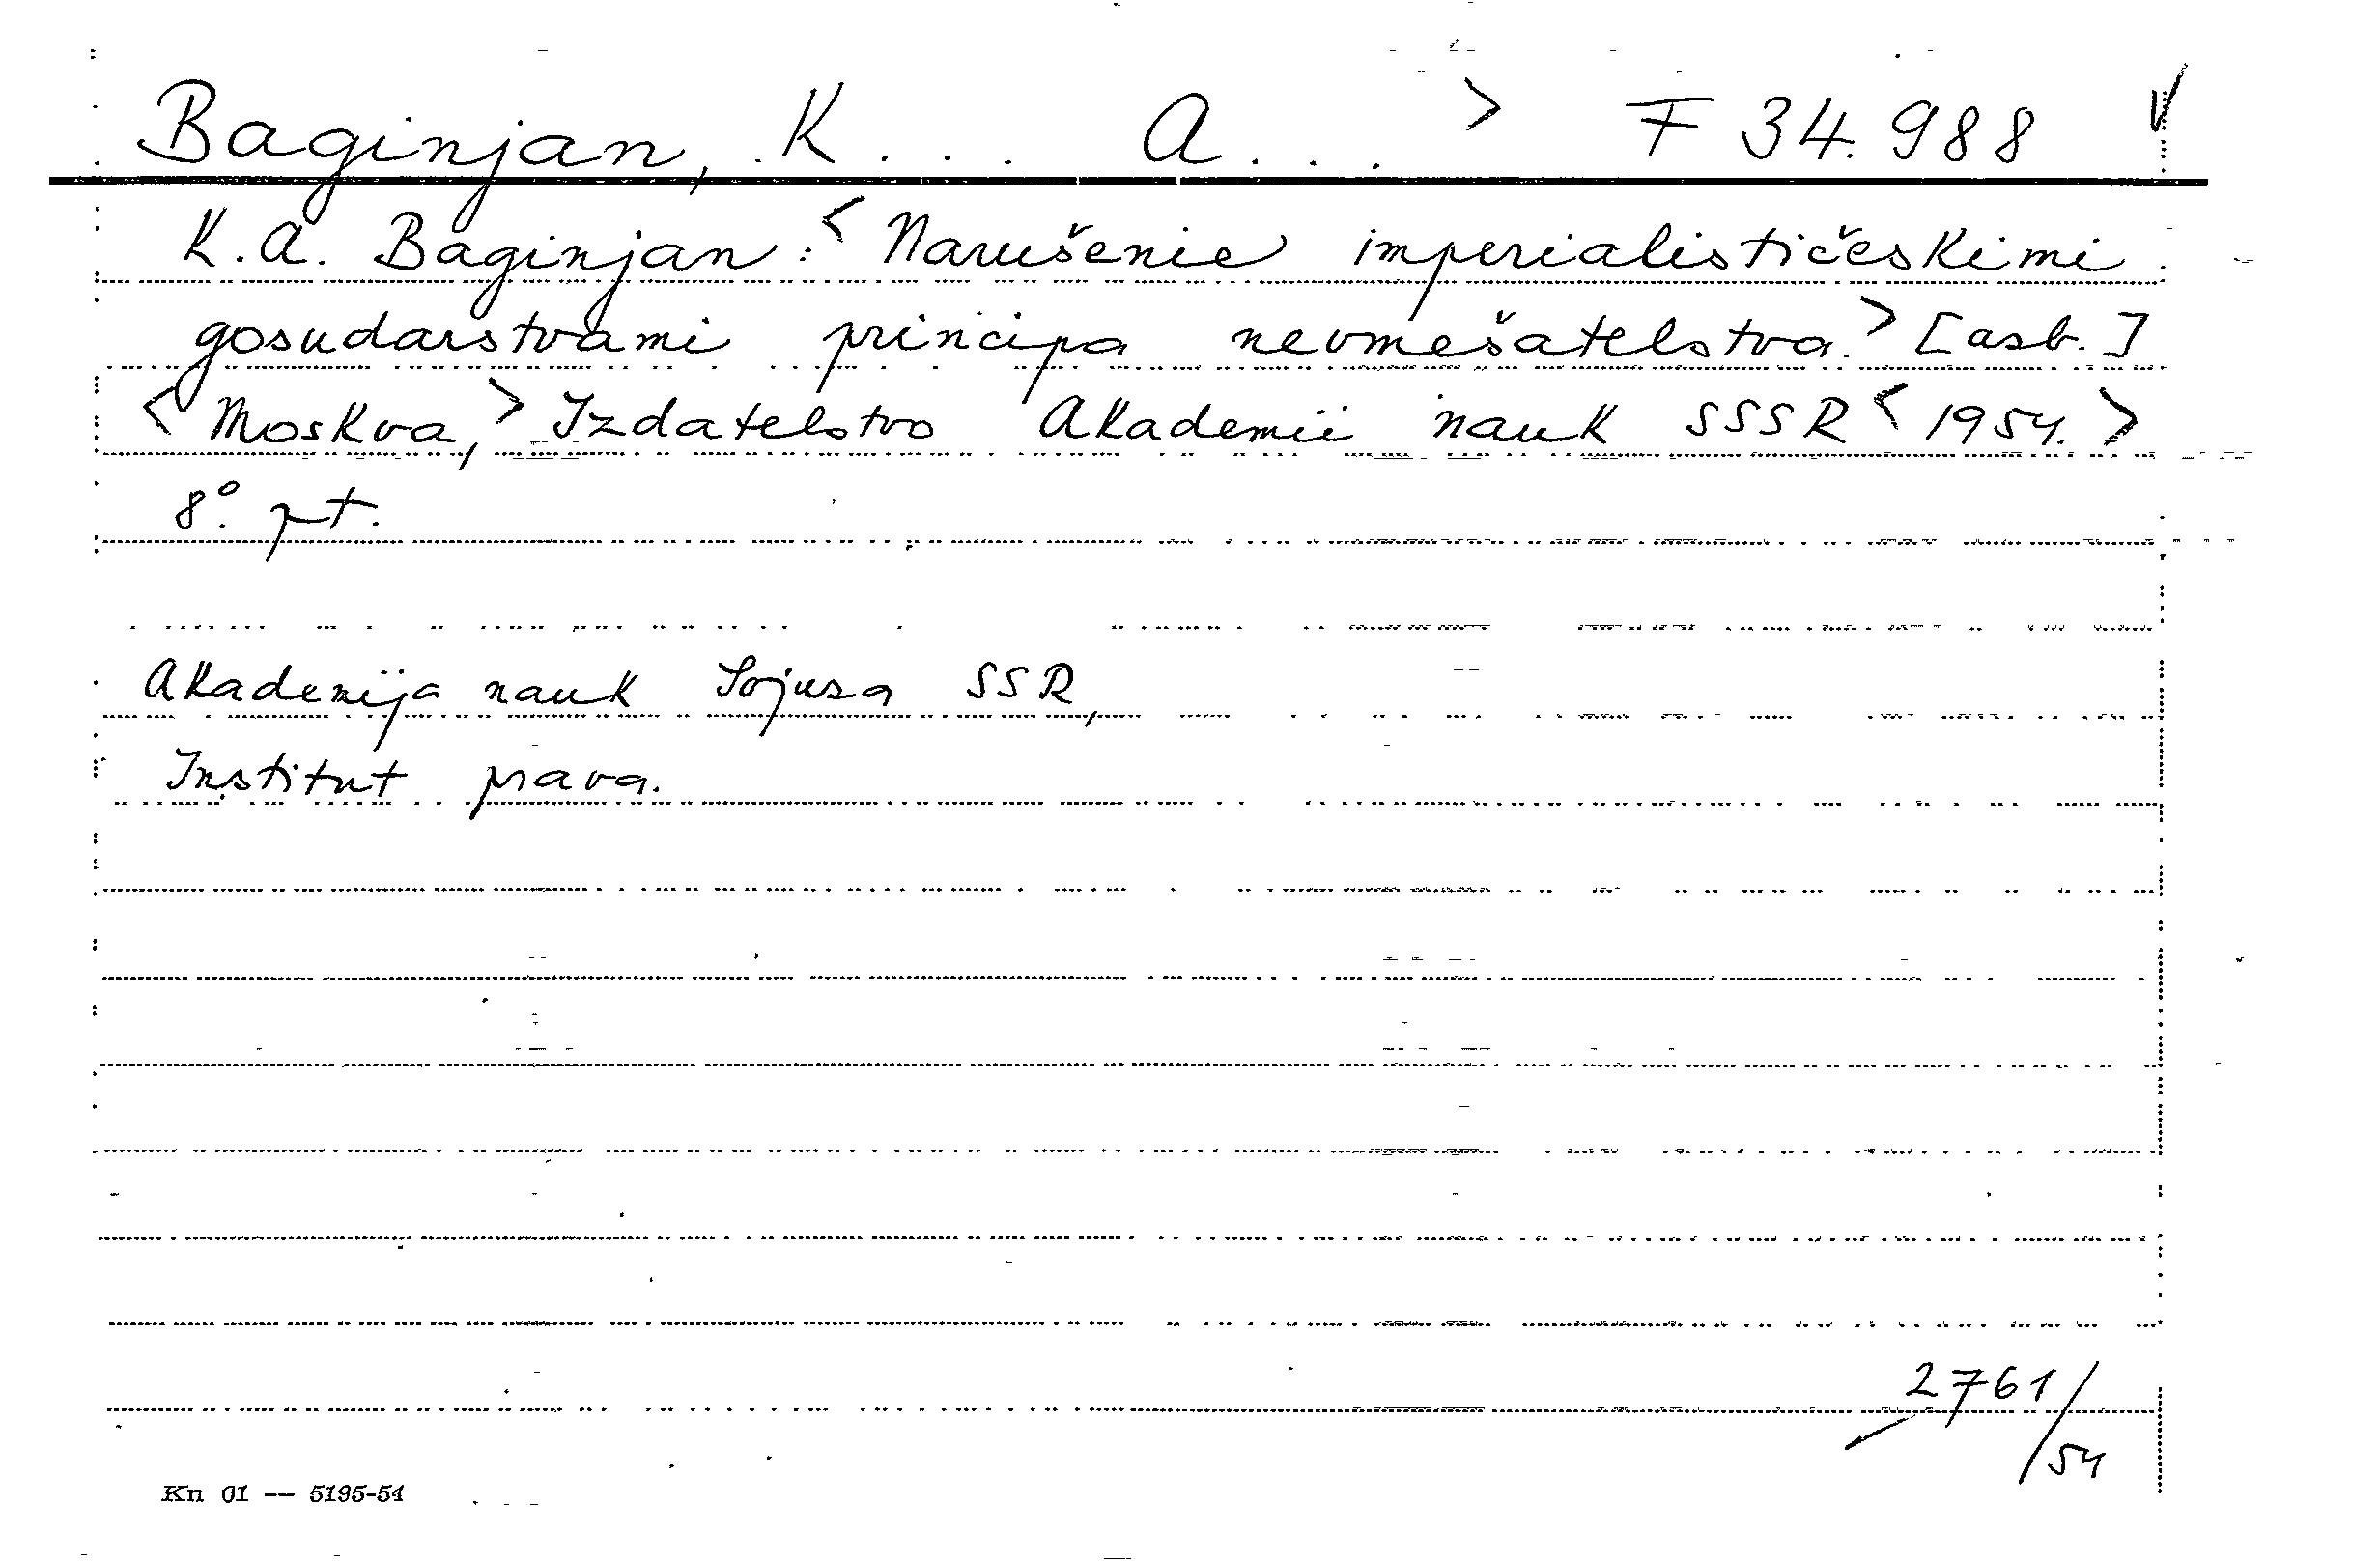 Baginjan, K... A... > F 34.988
K.A. Baginjan: < Narušenie imperialističeskimi
gosudarstvami principa nevmešatelstva. > [asb.]
< Moskva, > Izdatelstvo Akademii nauk SSSR < 1954. >
8°. pt.
Akademija nauk Sojusa SSR,
Institut prava.
2761/54
Kn 01 -- 5195-54